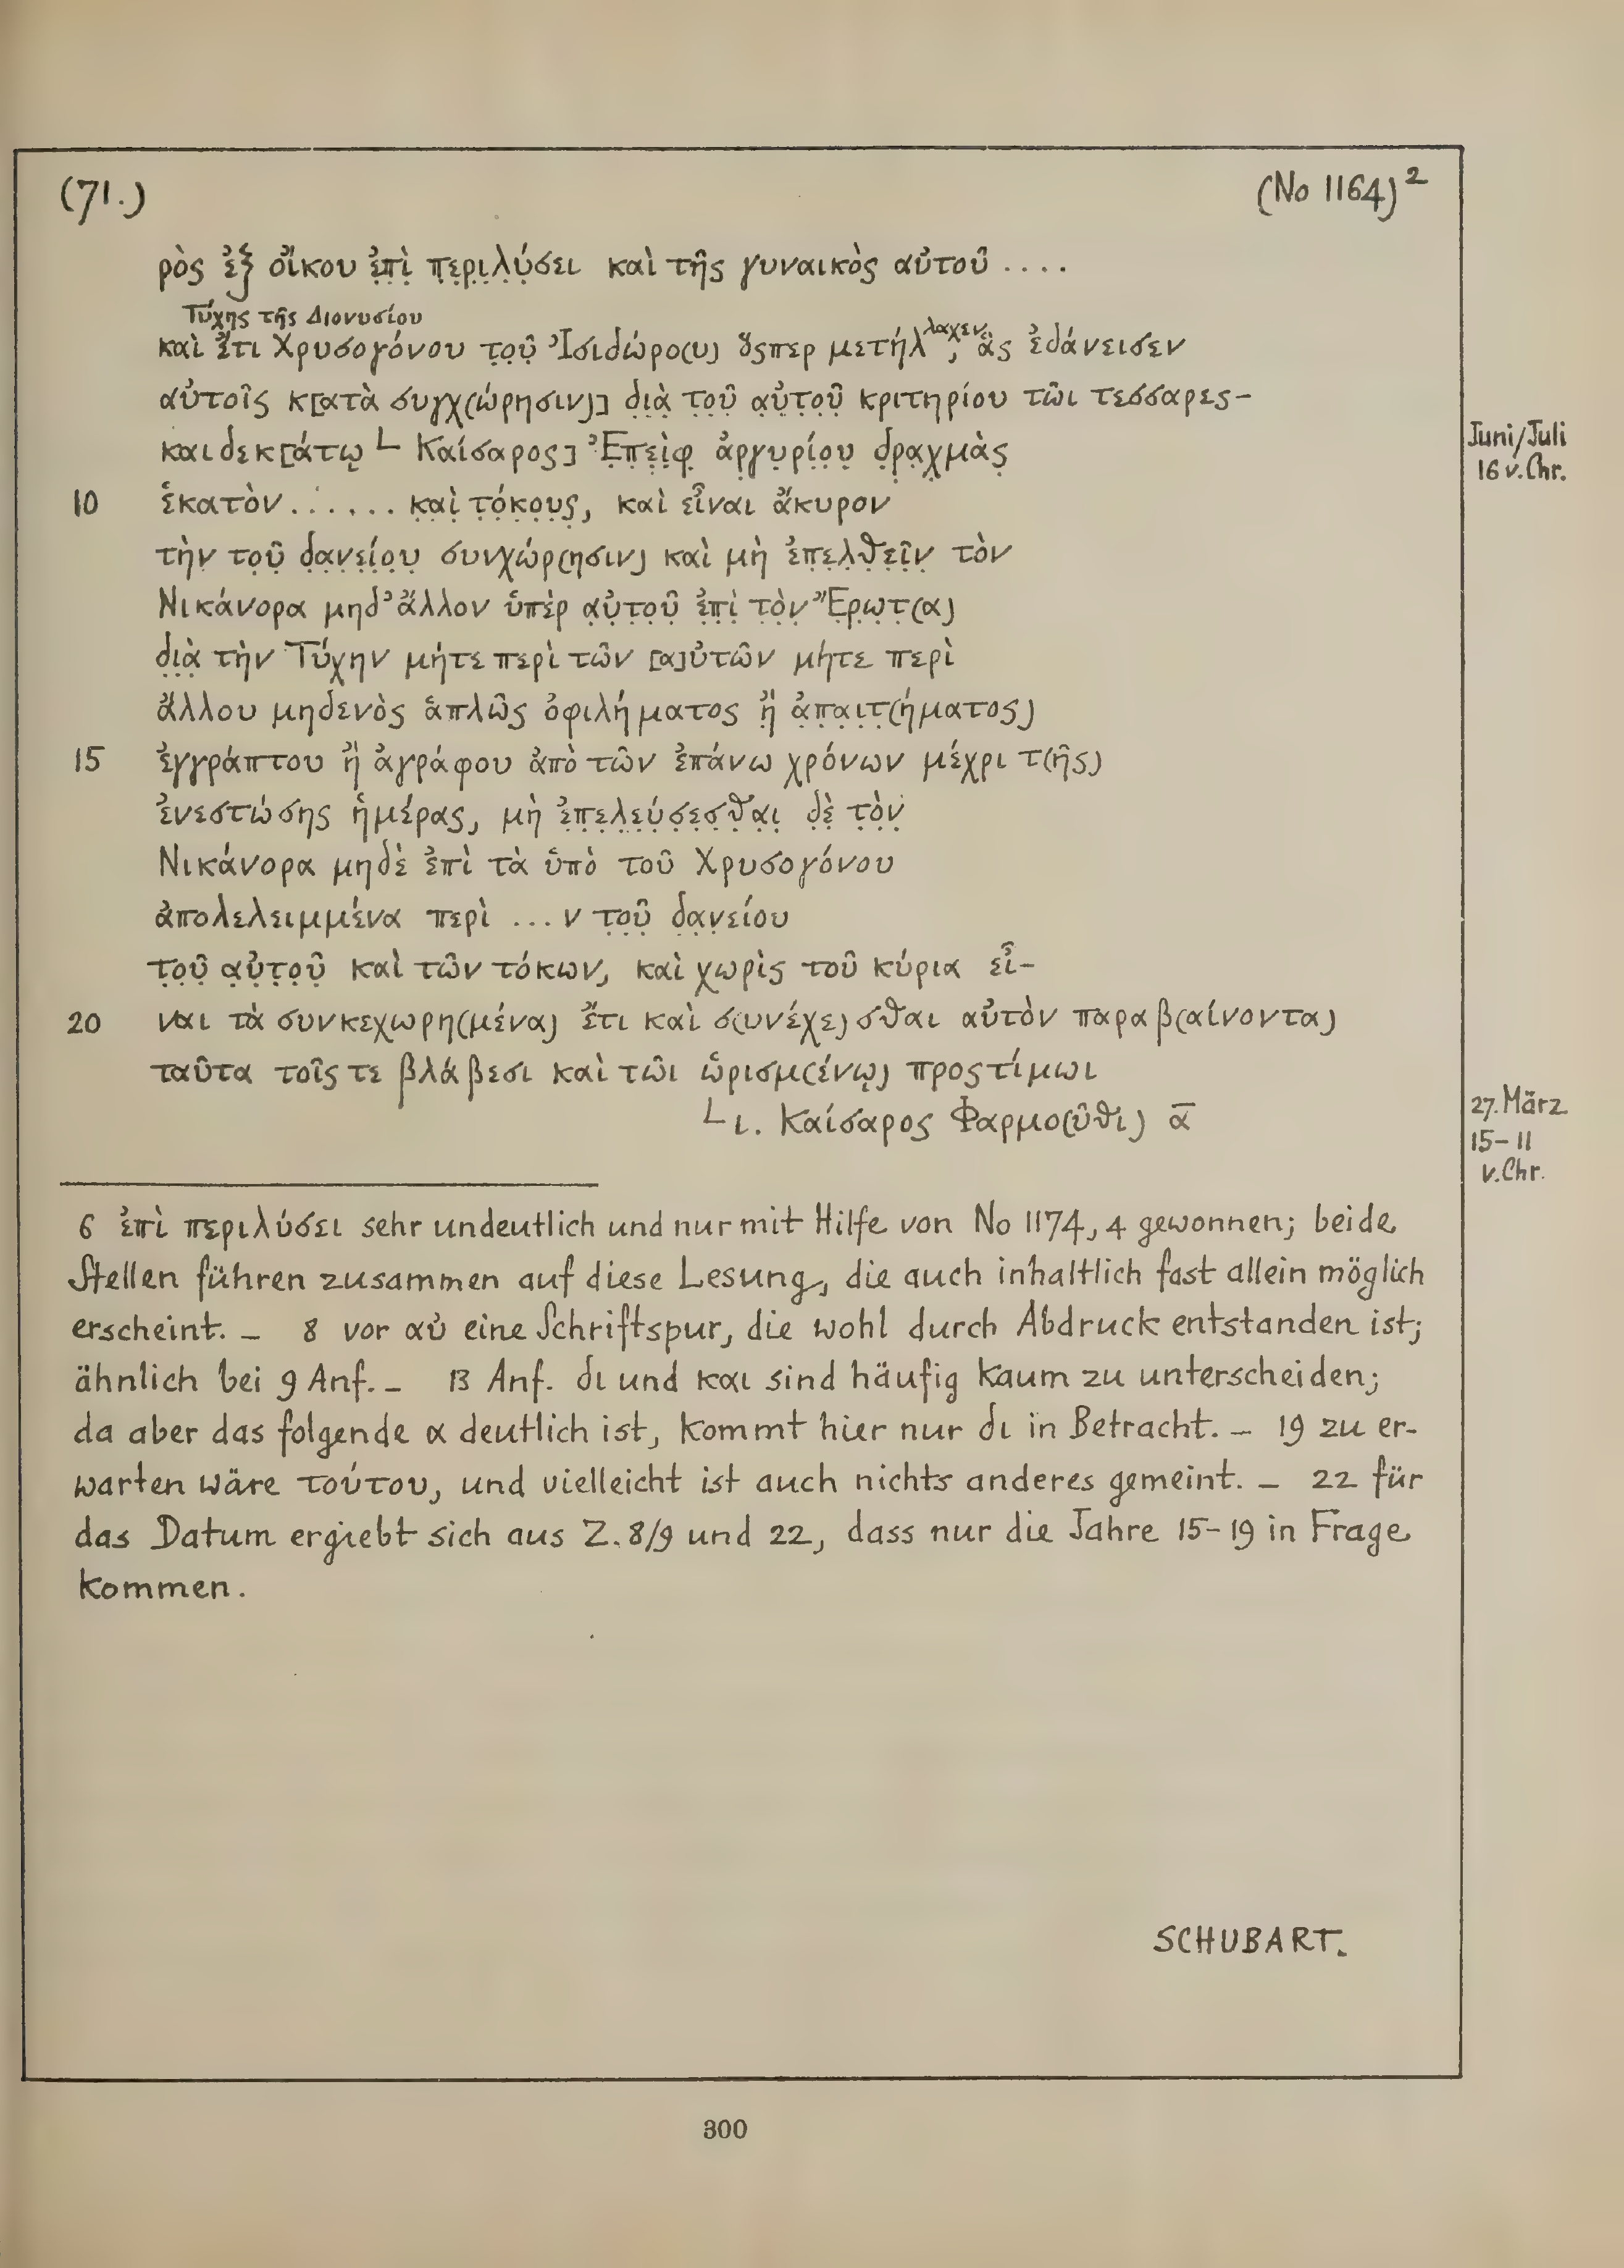 (71.) (No 1164)²
ρὸς ἐξ οἴκου ἐ̣π̣ὶ̣ π̣ε̣ρ̣ι̣λ̣ύ̣σει καὶ τῆς γυναικὸς αὐτοῦ ....
Τύχης τῆς Διονυσίου
καὶ ἔτι Χρυσογόνου τ̣ο̣ῦ̣ Ἰσιδώρο(υ) ὅςπερ μετήλλαχεν, ἃς ἐδάνεισεν
αὐτοῖς κ[ατὰ συγχ(ώρησιν)] δ̣ι̣ὰ̣ τ̣ο̣ῦ̣ α̣ὐ̣τ̣ο̣ῦ̣ κριτηρίου τῶι τεσσαρες-
καιδεκ[άτῳ └ Καίσαρος] Ἐ̣π̣ε̣ὶ̣φ̣ ἀ̣ρ̣γ̣υ̣ρ̣ί̣ο̣υ̣ δ̣ρ̣α̣χ̣μ̣ὰ̣ς̣
Juni/Juli
16 v. Chr.
10 ἑκατὸν ...... κ̣α̣ὶ̣ τ̣ό̣κ̣ο̣υ̣ς̣, καὶ εἶναι ἄκυρον
τὴν τ̣ο̣ῦ̣ δ̣α̣ν̣ε̣ί̣ο̣υ̣ συνχώρ(ησιν) καὶ μὴ ἐ̣π̣ε̣λ̣θ̣ε̣ῖ̣ν̣ τὸν
Νικάνορα μηδ’ ἄλλον ὑπὲρ α̣ὐ̣τ̣ο̣ῦ̣ ἐ̣π̣ὶ̣ τ̣ὸ̣ν̣ Ἔ̣ρ̣ω̣τ̣(α)
δ̣ι̣ὰ̣ τὴν Τύχην μήτε περὶ τῶν [α]ὐτῶν μήτε περὶ
ἄλλου μηδενὸς ἁπλῶς ὀφιλήματος ἢ̣ ἀ̣π̣α̣ι̣τ̣(ήματος)
15 ἐγγράπτου ἢ ἀγράφου ἀπὸ τῶν ἐπάνω χρόνων μέχρι τ(ῆς)
ἐνεστώσης ἡμέρας, μὴ ἐ̣π̣ε̣λ̣ε̣ύ̣σ̣ε̣σ̣θ̣α̣ι̣ δ̣ὲ̣ τ̣ὸ̣ν̣
Νικάνορα μηδὲ ἐπὶ τὰ ὑπὸ τοῦ Χρυσογόνου
ἀπολελειμμένα περὶ ...ν τ̣ο̣ῦ̣ δ̣α̣ν̣είου
τ̣ο̣ῦ̣ α̣ὐ̣τ̣ο̣ῦ̣ καὶ τῶν τόκων, καὶ χωρὶς τοῦ κύρια εἶ-
20 ναι τὰ συνκεχωρη(μένα) ἔτι καὶ σ(υνέχε)σθαι αὐτὸν παραβ(αίνοντα)
ταῦτα τοῖς τε βλάβεσι καὶ τῶι ὡρισμ(ένῳ) προςτίμωι
└ ι. Καίσαρος Φαρμο(ῦθι) α̅
27. März
15-11
v. Chr.
6 ἐπὶ περιλύσει sehr undeutlich und nur mit Hilfe von No 1174, 4 gewonnen; beide
Stellen führen zusammen auf diese Lesung, die auch inhaltlich fast allein möglich
erscheint. – 8 vor αὐ eine Schriftspur, die wohl durch Abdruck entstanden ist;
ähnlich bei 9 Anf. – 13 Anf. δι und και sind häufig kaum zu unterscheiden;
da aber das folgende α deutlich ist, kommt hier nur δι in Betracht. – 19 zu er-
warten wäre τούτου, und vielleicht ist auch nichts anderes gemeint. – 22 für
das Datum ergiebt sich aus Z. 8/9 und 22, dass nur die Jahre 15-19 in Frage
kommen.
SCHUBART.
300